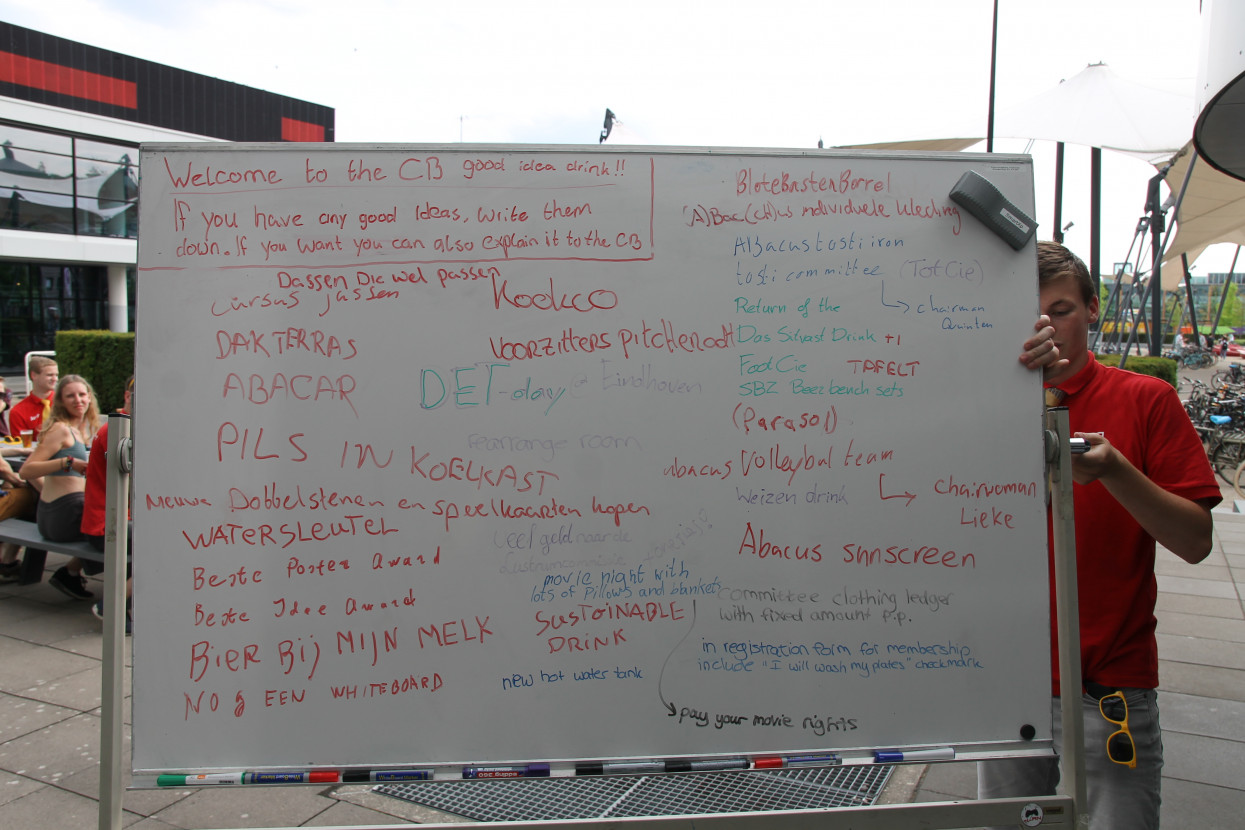 Welcome to the CB good idea drink!!
If you have any good Ideas, write them
down. If you want you can also explain it to the CB
Dassen Die wel passen
cursus jassen
Koekco
DAKTERRAS
voorzitters pitcheradt
ABACAR
DET-day in Eindhoven
PILS IN KOELKAST
rearrange room
Nieuwe Dobbelstenen en speelkaarten kopen
WATERSLEUTEL
Veel geld naar de
Beste Poster Award
movie night with
lots of Pillows and blankets
pay your movie nights
Beste Idee Award
SUSTOINABLE
DRINK
BIER BIJ MIJN MELK
new hot water tank
NOG EEN WHITEBOARD
BloteBastenBorrel
(A)Bac(ch)us individuele kleding
Abacus tosti iron
tosti committee (TotCie)
chairman
Quinten
Return of the
Das Silvast Drink +1
FoodCie TAFELT
SBZ Beerbench sets
(Parasol)
abacus Volleybal team
chairwoman
Lieke
Weizen drink
Abacus sunscreen
committee clothing ledger
with fixed amount p.p.
in registration form for membership
include "I will wash my plates" checkmark